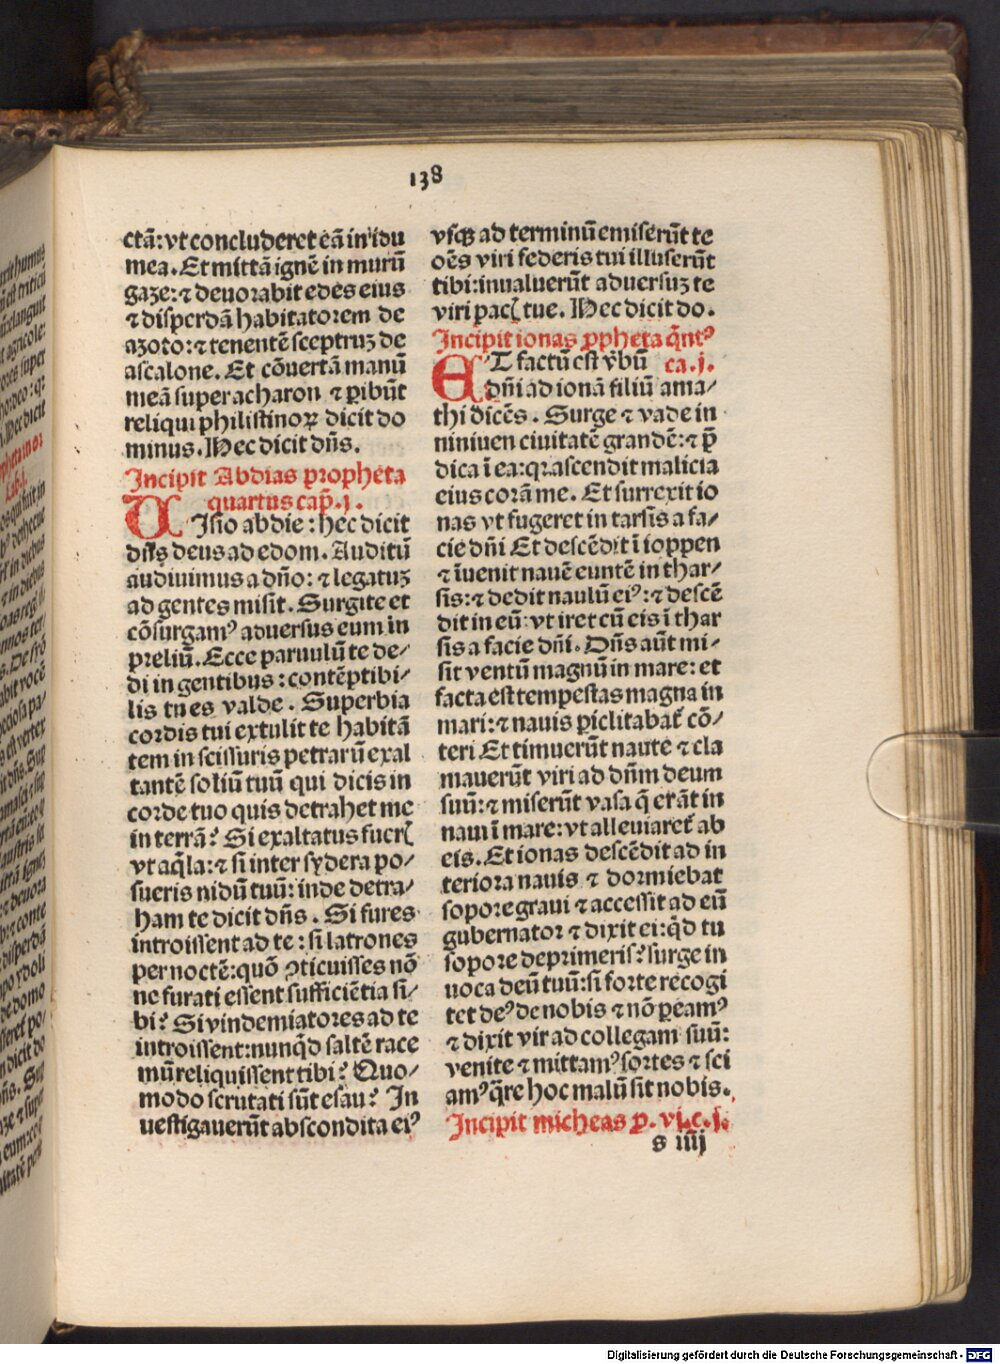 138
ctā: vt concluderet eā in idu
mea. Et mittā ignē in murū
gaze: ⁊ deuorabit edes eius
⁊ disperdā habitatorem de
azoto: ⁊ tenentē sceptruȝ de
ascalone. Et cōuertā manū
meā super acharon ⁊ ꝑibūt
reliqui philistinoꝝ dicit do
minus. Hec dicit dn̄s.
Incipit Abdias propheta
quartus cap̄. j.
UIsio abdie: hec dicit
dn̄s deus ad edom. Auditū
audiuimus a dn̄o: ⁊ legatuȝ
ad gentes misit. Surgite et
cōsurgamꝰ aduersus eum in
preliū. Ecce paruulū te de⸗
di in gentibus: contēptibi⸗
lis tu es valde. Superbia
cordis tui extulit te habitā
tem in scissuris petrarū exal
tantē soliū tuū qui dicis in
corde tuo quis detrahet me
in terrā? Si exaltatus fuerꝭ
vt aq̄la: ⁊ si inter sydera po⸗
sueris nidū tuū: inde detra⸗
ham te dicit dn̄s. Si fures
introissent ad te: si latrones
per noctē: quō ꝯticuisses nō
ne furati essent sufficiētia si⸗
bi? Si vindemiatores ad te
introissent: nunqͥd saltē race
mū reliquissent tibi? Quo⸗
modo scrutati sūt esau? In
uestigauerūt abscondita eiꝰ
vsqꝫ ad terminū emiserūt te
oēs viri federis tui illuserūt
tibi: inualuerūt aduersuȝ te
viri pacꝭ tue. Hec dicit do.
Incipit ionas ꝓpheta qͥntꝰ
ca. j.
ET factū est v̄bū
dn̄i ad ionā filiū ama⸗
thi dicēs. Surge ⁊ vade in
niniuen ciuitatē grandē: ⁊ p̄
dica ī ea: qꝛ ascendit malicia
eius corā me. Et surrexit io
nas vt fugeret in tarsis a fa⸗
cie dn̄i Et descēdit ī ioppen
⁊ īuenit nauē euntē in thar⸗
sis: ⁊ dedit naulū eiꝰ: ⁊ descē
dit in eū: vt iret cū eis ī thar
sis a facie dn̄i. Dn̄s aūt mi⸗
sit ventū magnū in mare: et
facta est tempestas magna in
mari: ⁊ nauis ꝑiclitabat᷑ cō⸗
teri Et timuerūt naute ⁊ cla
mauerūt viri ad dn̄m deum
suū: ⁊ miserūt vasa q̄ erāt in
naui ī mare: vt alleuiaret᷑ ab
eis. Et ionas descēdit ad in
teriora nauis ⁊ dormiebat
sopore graui ⁊ accessit ad eū
gubernator ⁊ dixit ei: qͥd tu
sopore deprimeris? surge in
uoca deū tuū: si forte recogi
tet deꝰ de nobis ⁊ nō ꝑeamꝰ
⁊ dixit vir ad collegam suū:
venite ⁊ mittamꝰ sortes ⁊ sci
amꝰ q̄re hoc malū sit nobis.
Incipit micheas ꝓ. vj. c. j.
s iiij
Digitalisierung gefördert durch die Deutsche Forschungsgemeinschaft - DFG